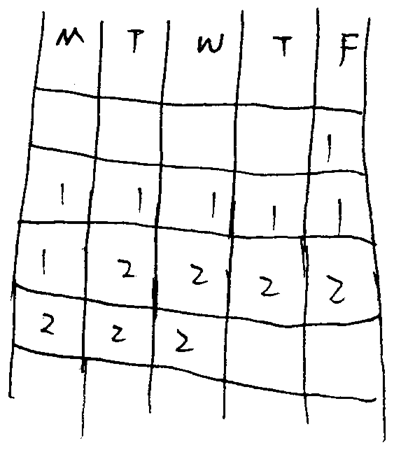 M T W T F
1
1 1 1 1 1
1 2 2 2 2
2 2 2